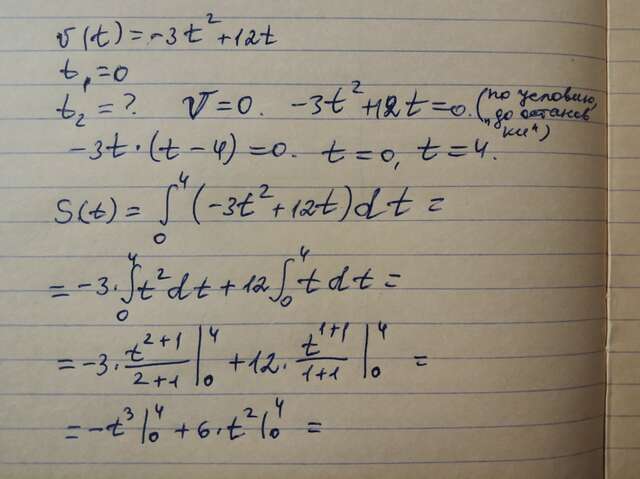 v(t) = -3t² + 12t
t₁ = 0
t₂ = ? V = 0. -3t² + 12t = 0. (по условию,
„до останов
ки")
-3t · (t - 4) = 0. t = 0, t = 4.
S(t) = ∫₀⁴ (-3t² + 12t) dt =
= -3 · ∫₀⁴ t² dt + 12 ∫₀⁴ t dt =
= -3 · t²⁺¹/2+1 |₀⁴ + 12 · t¹⁺¹/1+1 |₀⁴ =
= -t³ |₀⁴ + 6 · t² |₀⁴ =